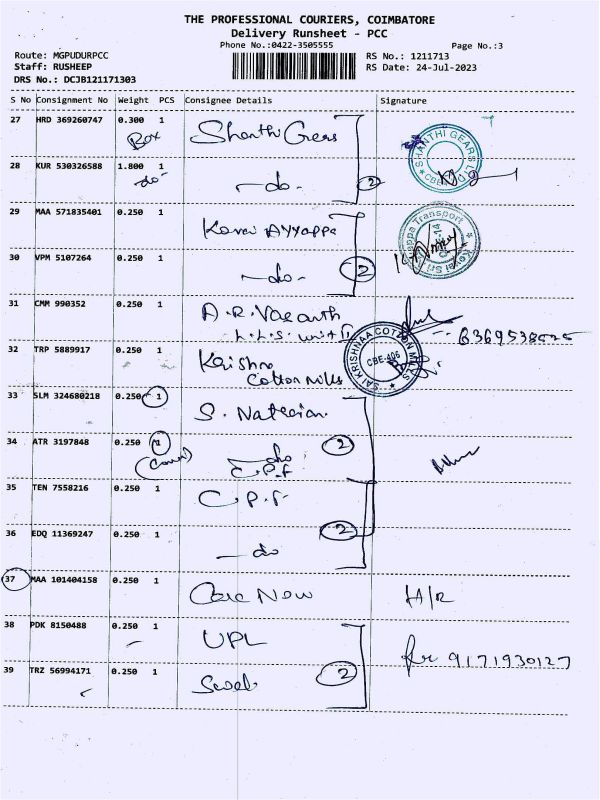 THE PROFESSIONAL COURIERS, COIMBATORE
Delivery Runsheet - PCC
Phone No.:0422-3505555
Page No.:3
Route: MGPUDURPCC
RS No.: 1211713
Staff: RUSHEEP
RS Date: 24-Jul-2023
DRS No.: DCJB121171303
S No Consignment No Weight PCS Consignee Details Signature
27 HRD 369260747 0.300 1 Shanthi Gears
Box
SHANTHI GEARS LTD
CBE
28 KUR 530326588 1.800 1 -do-
-do-
2
29 MAA 571835401 0.250 1 Kovai Ayyappa
Kovai Sri Ayyappa Transport
30 VPM 5107264 0.250 1 -do- 2
31 CMM 990352 0.250 1 A.R. Vasanth
L.L.S. unit II
32 TRP 5889917 0.250 1 Krishna
Cotton Mills
SAI KRISHNAA COTTON MILLS
CBE-406
33 SLM 324680218 0.250 1 S. Natesan
34 ATR 3197848 0.250 1 do 2
(Cover) C.P.F
35 TEN 7558216 0.250 1 C.P.F
36 EDQ 11369247 0.250 1 -do 2
37 MAA 101404158 0.250 1 Care Now H/R
38 PDK 8150488 0.250 1 UPL
9171930127
39 TRZ 56994171 0.250 1 2